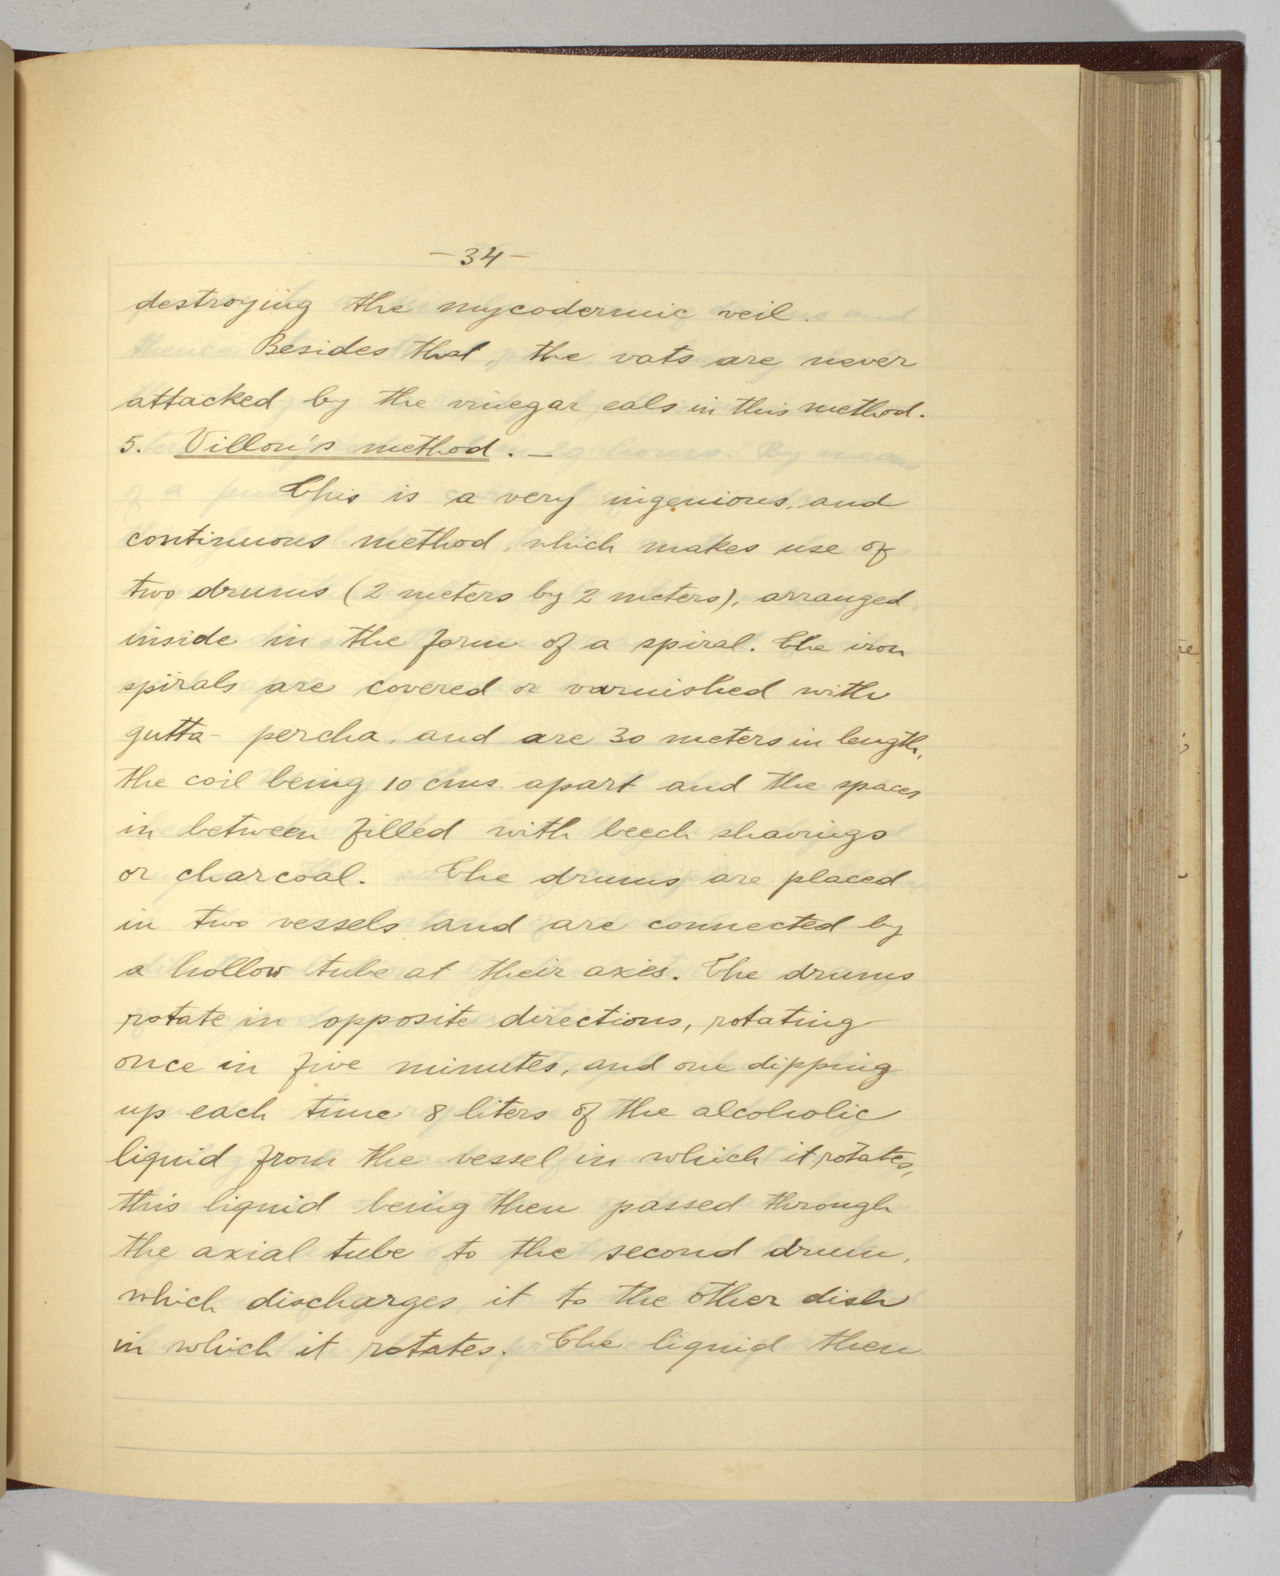 -34-
destroying the mycodermic veil.
Besides that, the vats are never
attacked by the vinegar eals in this method.
5. Villon's method. —
This is a very ingenious, and
continuous method, which makes use of
two drums (2 meters by 2 meters), arranged
inside in the form of a spiral. The iron
spirals are covered or varnished with
gutta-percha, and are 30 meters in length,
the coil being 10 cms. apart and the spaces
in between filled with beech shavings
or charcoal. The drums are placed
in two vessels and are connected by
a hollow tube at their axes. The drums
rotate in opposite directions, rotating
once in five minutes, and one dipping
up each time 8 liters of the alcoholic
liquid from the vessel in which it rotates,
this liquid being then passed through
the axial tube to the second drum,
which discharges it to the other dish
in which it rotates. The liquid then